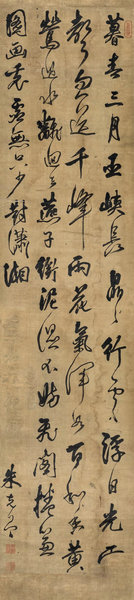 暮春三月巫峽長皛皛行雲浮日光雷
聲忽送千峰雨花氣渾如百和香黃
鶯過水翻迴去燕子銜泥濕不妨飛閣捲簾
圖畫裏虛無只少對瀟湘
朱